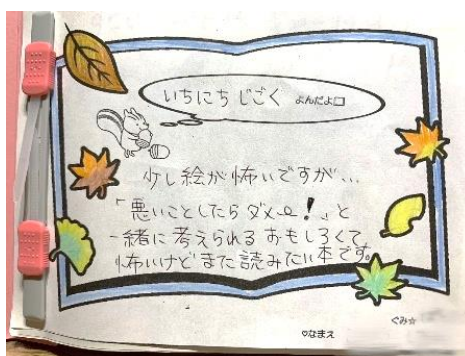 いちにちじごく よんだよ□
少し絵が怖いですが…
「悪いことしたらダメー!」と
一緒に考えられるおもしろくて
怖いけどまた読みたい本です。
ぐみ☆
♡なまえ